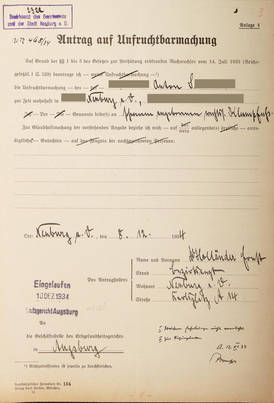 2322
Bezirksamt des Bezirksarztes
und der Stadt Neuburg a.D.
Anlage 4
Antrag auf Unfruchtbarmachung
Auf Grund der §§ 1 bis 3 des Gesetzes zur Verhütung erbkranken Nachwuchses vom 14. Juli 1933 (Reichs-
gesetzbl. I S. 529) beantrage ich — meine Unfruchtbarmachung —
die Unfruchtbarmachung — des — der — Anton S
zur Zeit wohnhaft in Neuburg a. D.,
Der — Die — Genannte leidet an schwerem angeborenen Klumpfuß
Zur Glaubhaftmachung der vorstehenden Angabe beziehe ich mich — auf anliegendes ärztliches — amts-
ärztliches — Gutachten — auf das Zeugnis der nachbenannten Personen:
Ort: Neuburg a. D. den 8. 12. 1934
Des Antragstellers:
Name und Vorname Dr Holländer Ernst
Stand Bezirksarzt
Wohnort Neuburg a. D.
Straße A 14
Eingelaufen
10. DEZ. 1934
Amtsgericht Augsburg
An
die Geschäftsstelle des Erbgesundheitsgerichts
in Augsburg
*) Nichtzutreffendes ist jeweils zu durchstreichen.